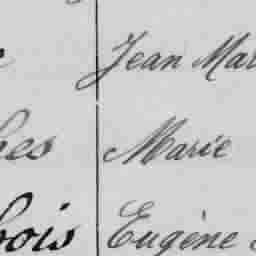 Jean Mar
hes Marie
bois Eugène